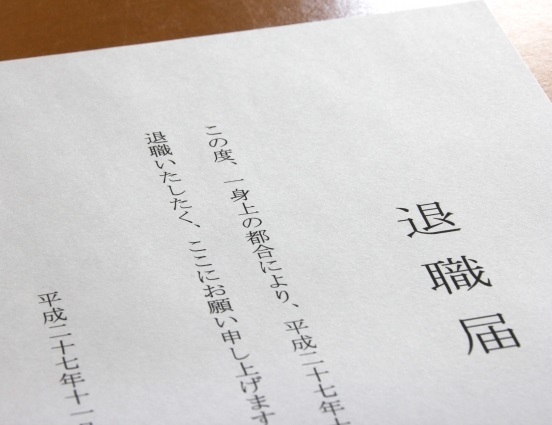 退職届
この度、一身上の都合により、平成二十七年十
退職いたしたく、ここにお願い申し上げます
平成二十七年十一